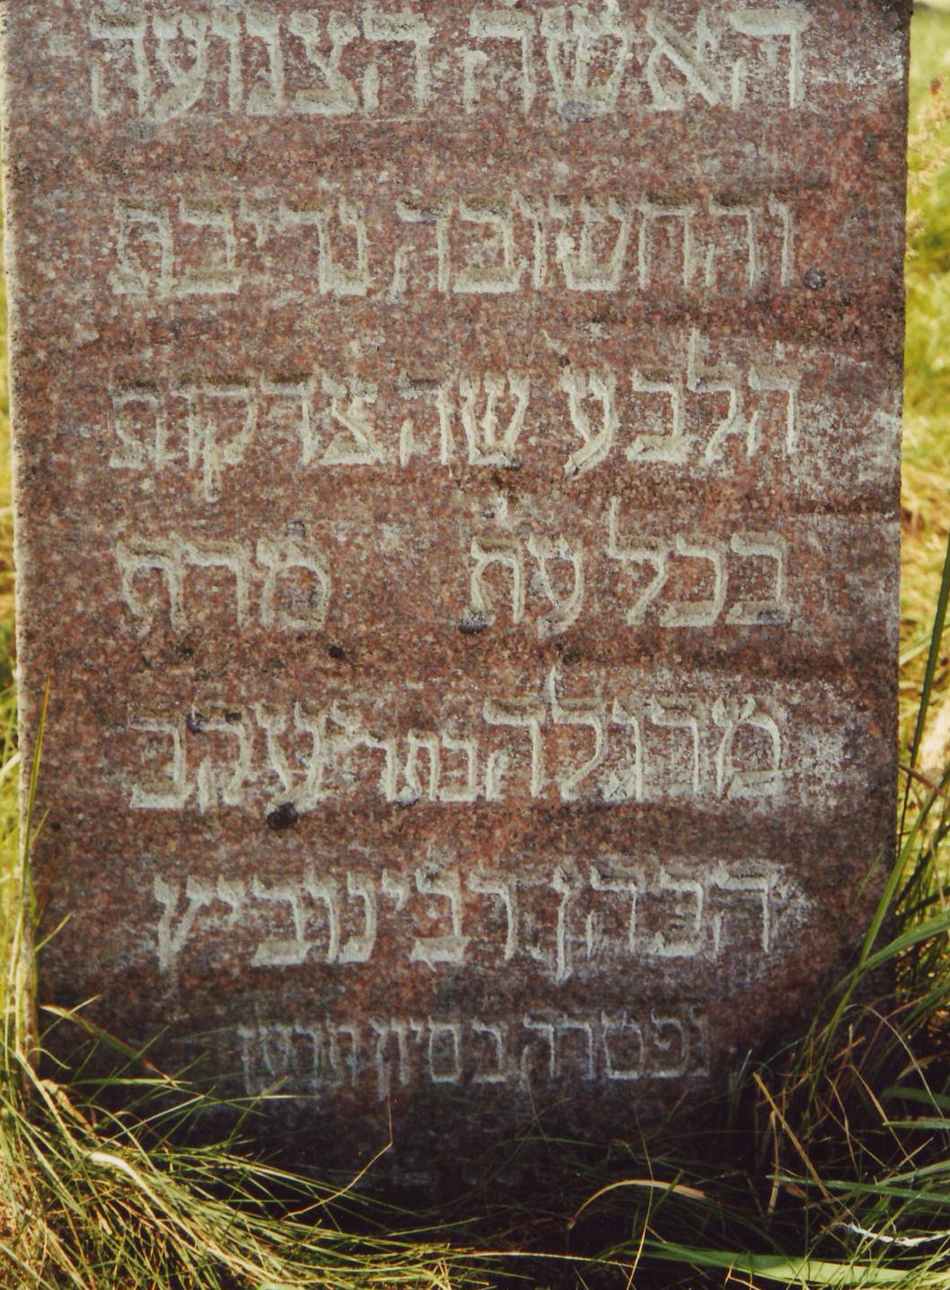 האשה הצנועה
והחשובה נדיבת
הלב עשה צדקות
בכל עת מרת
מרגלה בתר יעקב
הכהן רבינוביץ
נפטרה בסיון